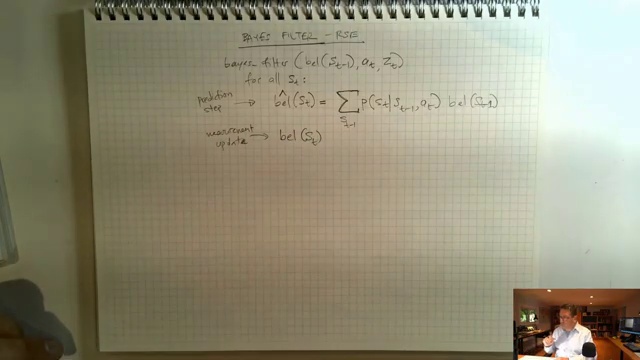 BAYES FILTER - RSE
bayes filter (bel(St-1), at, Zt)
for all St:
prediction step → bel^(St) = ∑St-1 p(St|St-1, at) bel(St-1)
measurement update → bel(St)